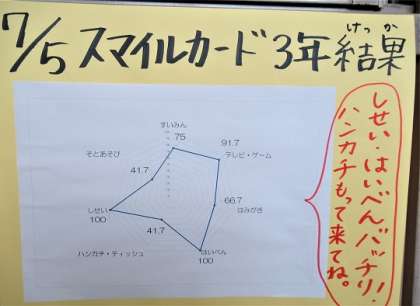 7/5 スマイルカード 3年 結果
けっか
すいみん
75
91.7
テレビ・ゲーム
66.7
はみがき
はいべん
100
41.7
ハンカチ・ティッシュ
しせい
100
41.7
そとあそび
しせい・はいべんバッチリ!
ハンカチもって来てね。